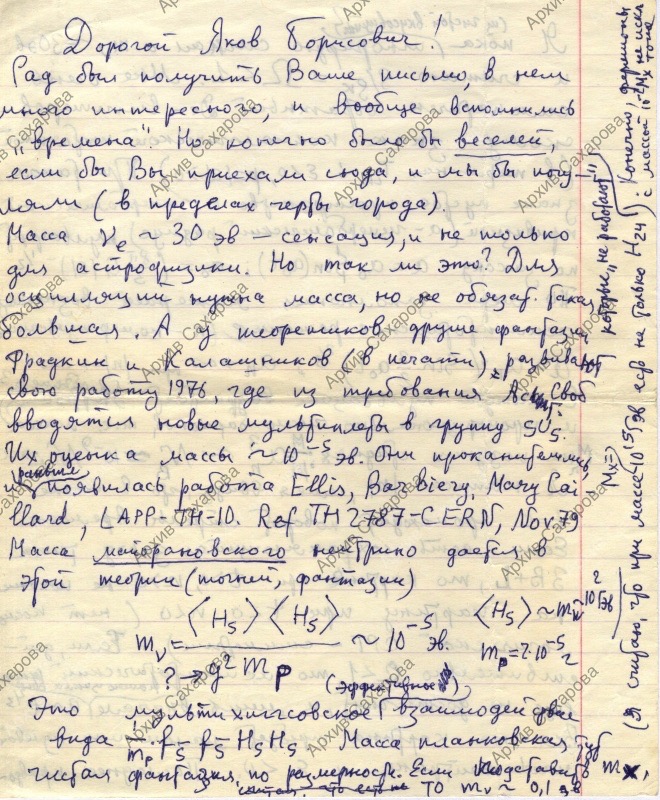 Дорогой Яков Борисович!
Рад был получить Ваше письмо, в нем
много интересного, и вообще вспомнились
"времена". Но конечно было бы веселей,
если бы Вы приехали сюда, и мы бы погу-
ляли (в пределах черты города).
Масса νe ~ 30 эв — сенсация, и не только
для астрофизики. Но так ли это? Для
осцилляций нужна масса, но не обязат. такая
большая. А у теоретиков другие фантазии
Фрадкин и Калашников (в печати) развивают
свою работу 1976, где из требования Ас. Своб.
вводятся новые мультиплеты в группу SU5.
Их оценка массы ~ 10^-5 эв. Они проканителились,
и раньше появилась работа Ellis, Barbiery, Mary Gai
llard, LAPP-TH-10. Ref TH 2787-CERN, Nov 79
Масса майорановского нейтрино дается в
этой теории (точней, фантазии)
mν = <H5> <H5> / g² mP ~ 10^-5 эв.
? →
<H5> ~ mw 10² Гэв
mp = 2·10^-5 г
(Эффективные)
Это мультихиггсовское взаимодействие
вида 1/mp f5 f5 H5 H5. Масса планковская
чистая фантазия, по размерности. Если подставить mx,
то mν ~ 0,1 эв
(Я считаю, что при массе ~10^15 Гэв
Mx ⇒
есть не только H24
которые "не работают",
Конечно, фермионы
с массой 10^-2 Mx не